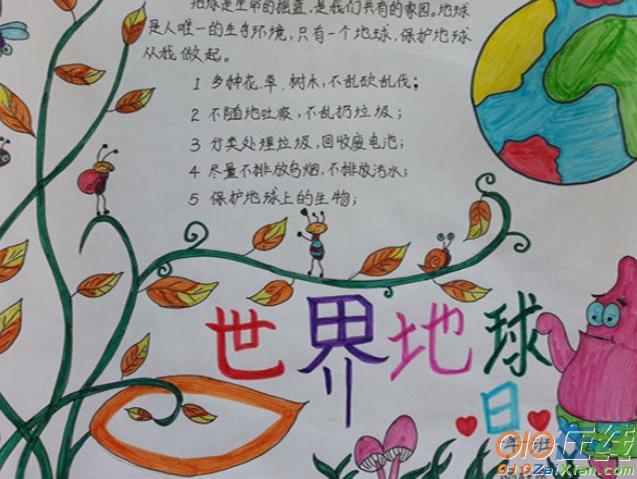 地球是生命的摇蓝,是我们共有的家园。地球
是人唯一的生存环境,只有一个地球,保护地球
从我做起。
1 多种花、草、树木,不乱砍乱伐;
2 不随地吐痰,不乱扔垃圾;
3 分类处理垃圾,回收废电池;
4 尽量不排放乌烟,不排放污水;
5 保护地球上的生物;
世界地球
日
年 班
010在线
010ZaiXian.Com